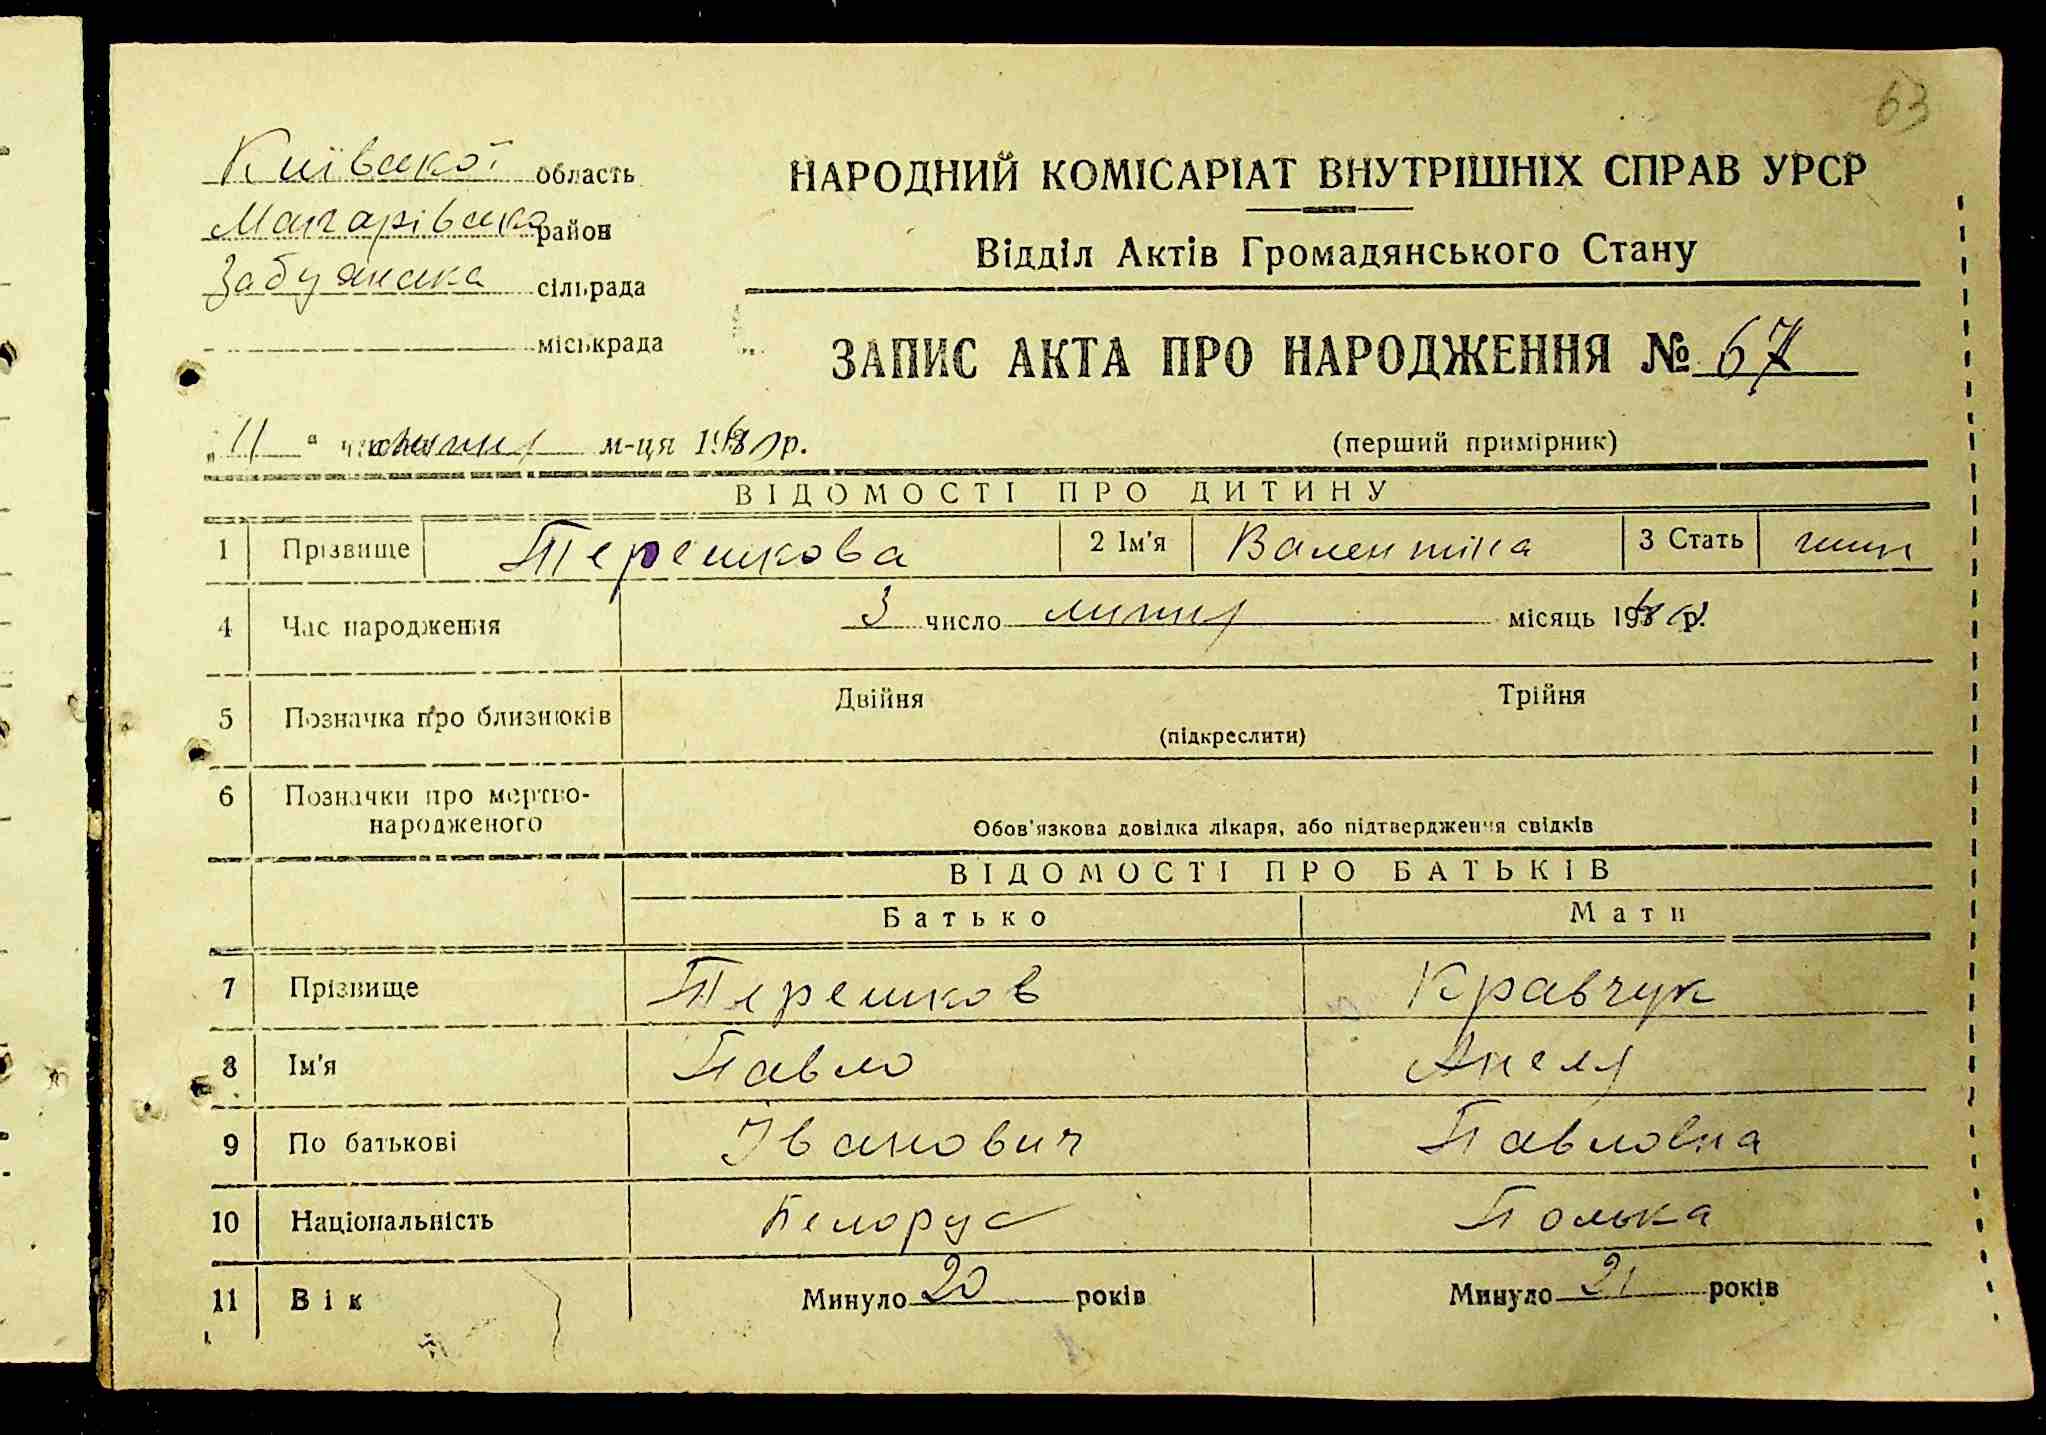 63
Київської область
Макарівська район
Забуянська сільрада
міськрада
НАРОДНИЙ КОМІСАРІАТ ВНУТРІШНІХ СПРАВ УРСР
Відділ Актів Громадянського Стану
ЗАПИС АКТА ПРО НАРОДЖЕННЯ № 67
„11“ липня м-ця 19 р.
(перший примірник)
ВІДОМОСТІ ПРО ДИТИНУ
1 Прізвище Терешкова 2 Ім'я Валентіна 3 Стать жин
4 Час народження 3 число липня місяць 19 р.
5 Позначка про близнюків Двійня Трійня
(підкреслити)
6 Позначки про мертво-
народженого
Обов'язкова довідка лікаря, або підтвердження свідків
ВІДОМОСТІ ПРО БАТЬКІВ
Батько Мати
7 Прізвище Терешков Кравчук
8 Ім'я Павло Анеля
9 По батькові Іванович Павловна
10 Національність Белорус Полька
11 Вік Минуло 20 років Минуло 21 років